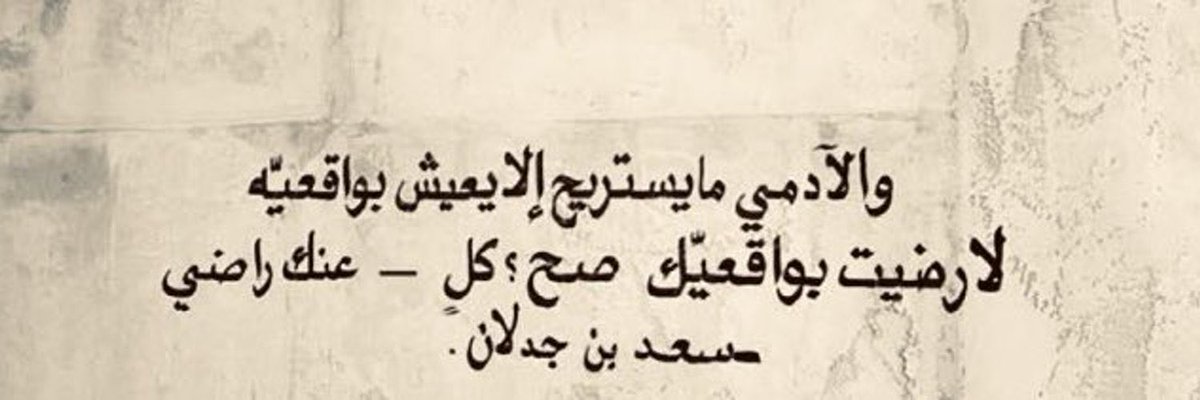 والآدمي مايستريح إلا يعيش بواقعيّه
لا رضيت بواقعيّك صح؟ كلٍ – عنك راضي
سعد بن جدلان.